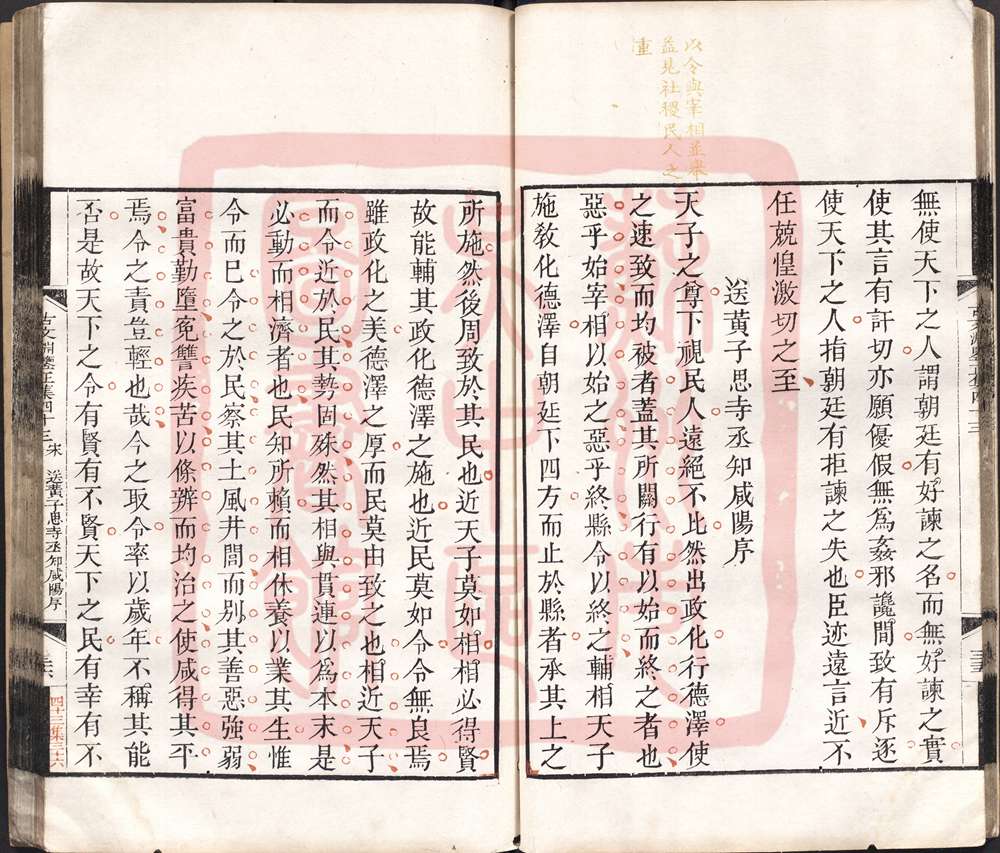 以令與宰相並舉
益見社稷民人之
重
無使天下之人謂朝廷有好諫之名而無好諫之實
使其言有訐切亦願優假無爲姦邪讒間致有斥逐
使天下之人指朝廷有拒諫之失也臣迹遠言近不
任兢惶激切之至
送黃子思寺丞知咸陽序
天子之尊下視民人遠絕不比然出政化行德澤使
之速致而均被者蓋其所關行有以始而終之者也
惡乎始宰相以始之惡乎終縣令以終之輔相天子
施敎化德澤自朝廷下四方而止於縣者承其上之
所施然後周致於其民也近天子莫如相相必得賢
故能輔其政化德澤之施也近民莫如令令無良焉
雖政化之美德澤之厚而民莫由致之也相近天子
而令近於民其勢固殊然其相與貫連以爲本末是
必動而相濟者也民知所賴而相休養以業其生惟
令而已令之於民察其土風井閭而别其善惡強弱
富貴勤墮冤讐疾苦以條辨而均治之使咸得其平
焉令之責豈輕也哉令之取令率以歲年不稱其能
否是故天下之令有賢有不賢天下之民有幸有不
古文淵鑒正集四十三
宋
送黃子思寺丞知咸陽序
四十三集三六